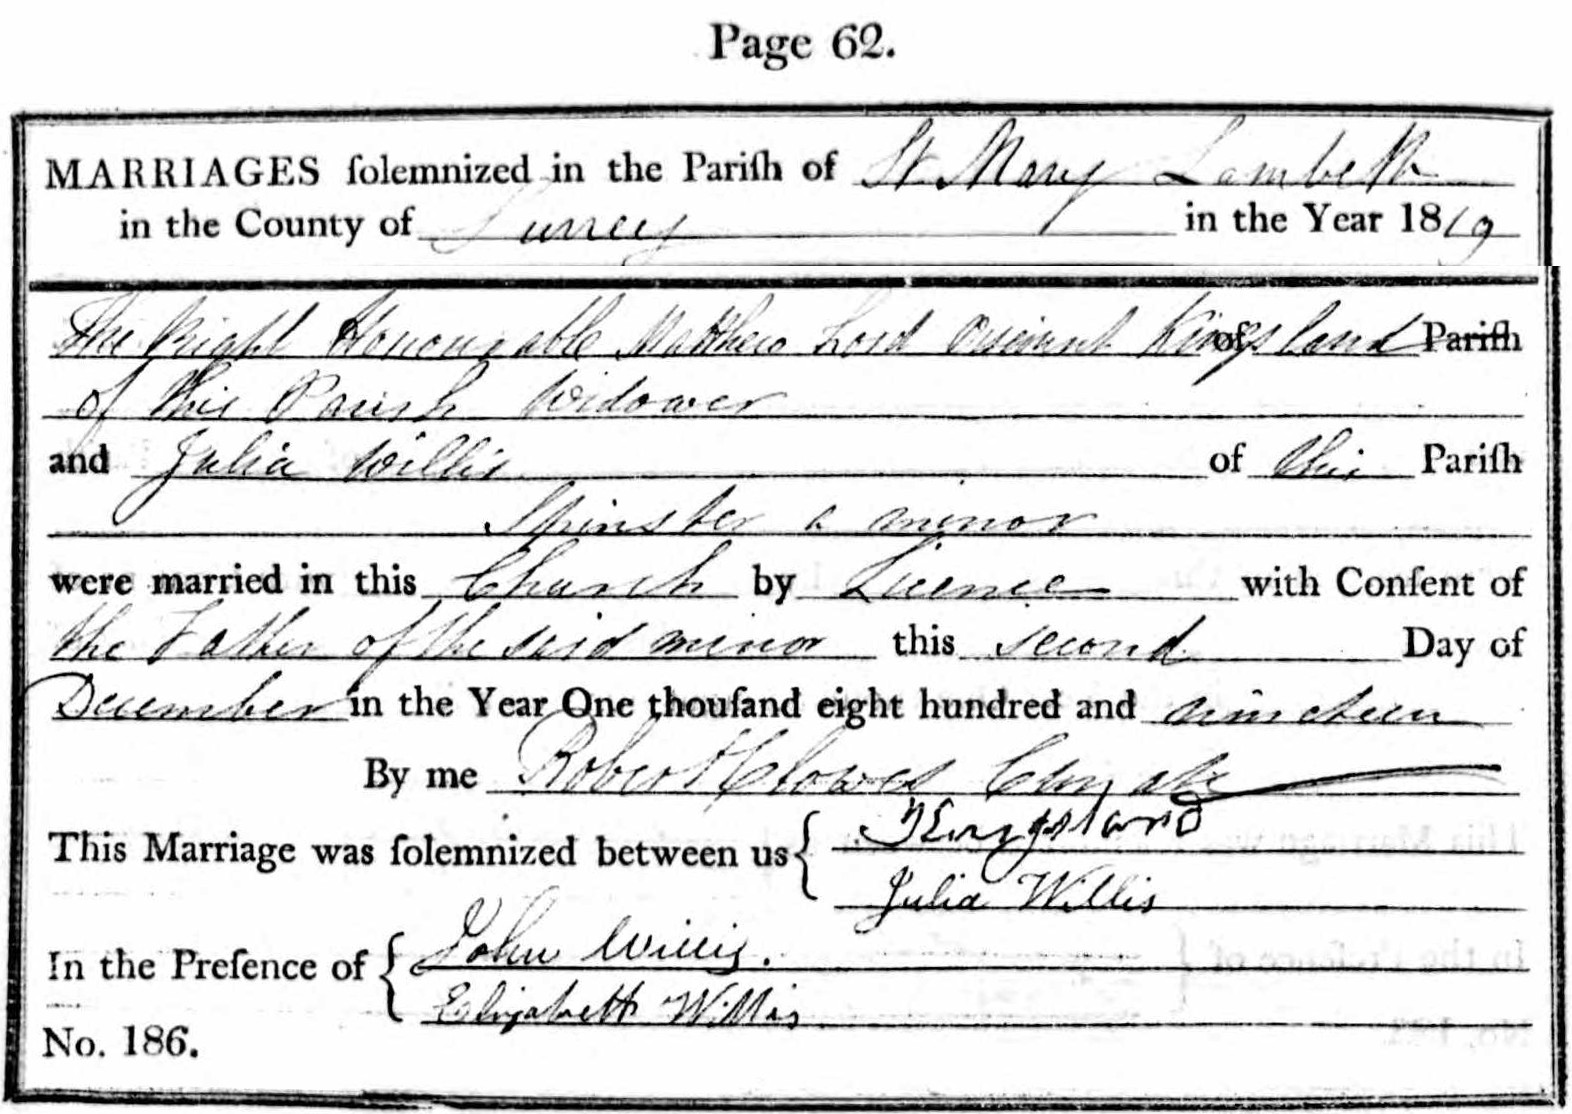 Page 62.
MARRIAGES ſolemnized in the Pariſh of St Mary Lambeth
in the County of Surrey in the Year 1819
The Right Honourable Matthew Lord Viscount Kingsland of Pariſh
of this Parish Widower
and Julia Willis of this Pariſh
Spinster a minor
were married in this Church by Licence with Conſent of
the Father of the said minor this second Day of
December in the Year One thouſand eight hundred and nineteen
By me Robert Clowes Curate
This Marriage was ſolemnized between us { Kingsland
Julia Willis
In the Preſence of { John Willis.
Elizabeth Willis
No. 186.